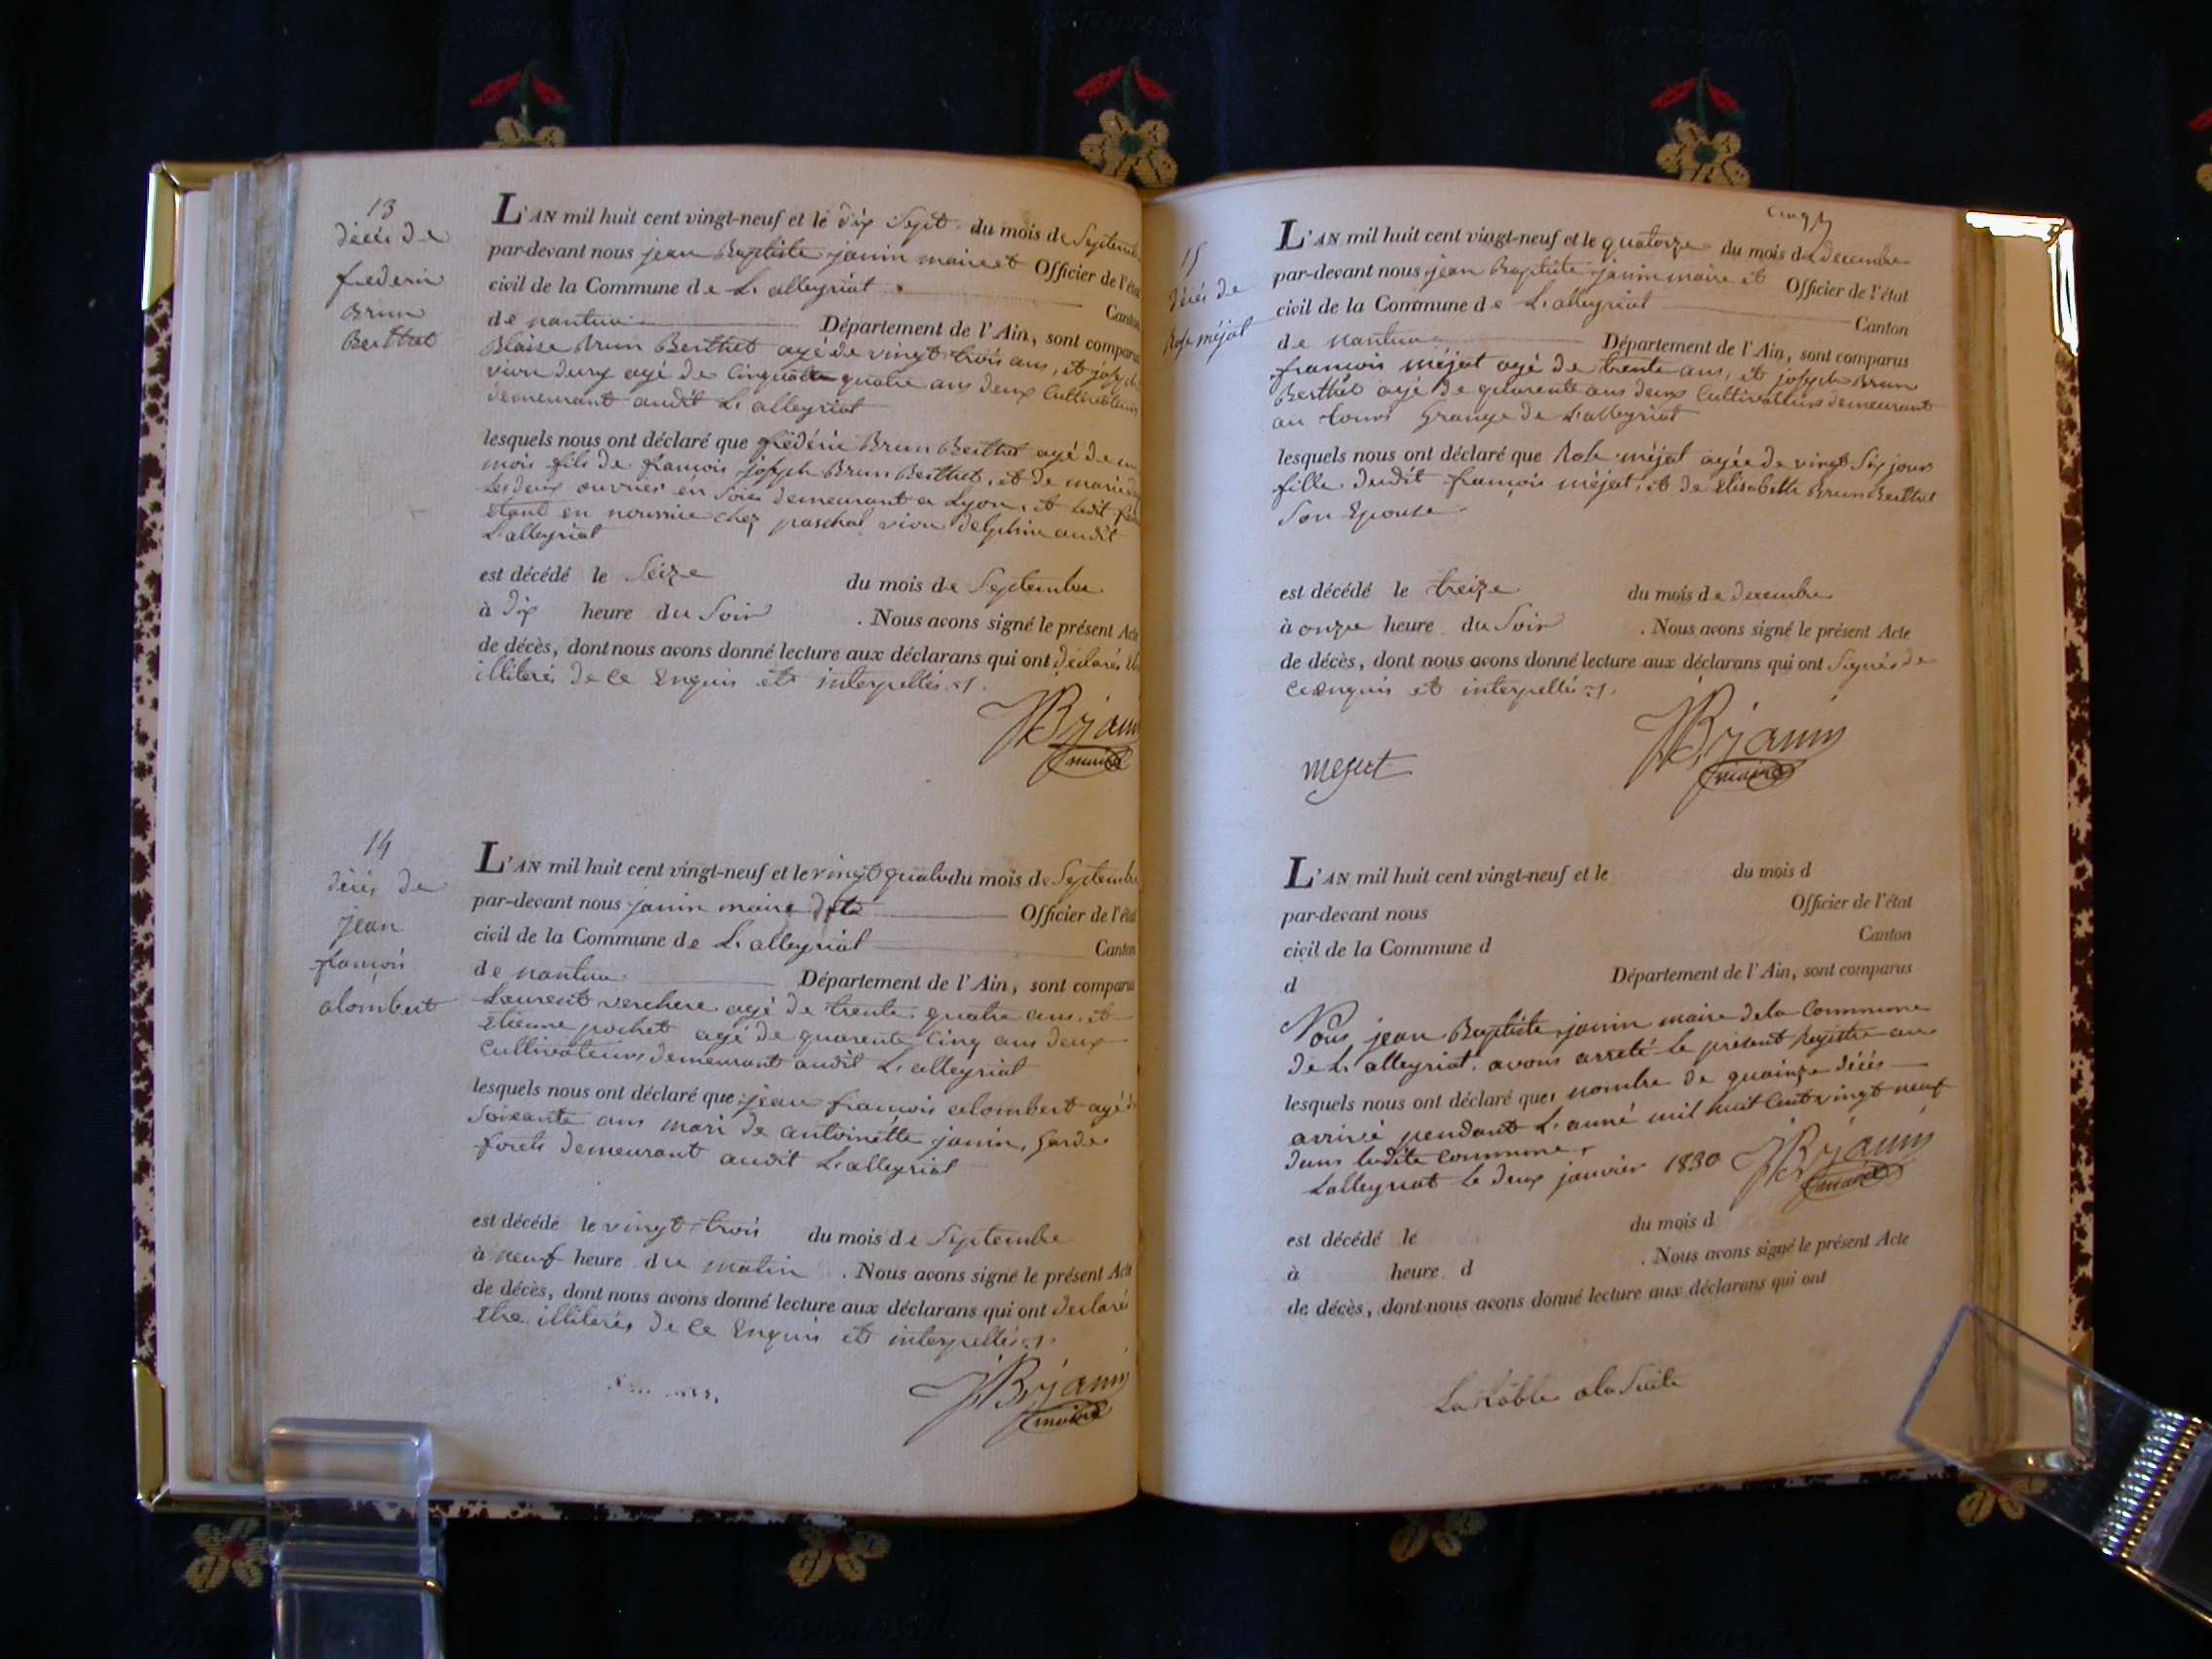 13
décés de
frederic
Brun
Berthet
L'AN mil huit cent vingt-neuf et le dix Sept du mois de Septemb
par-devant nous jean Baptiste janin maire et Officier de l'éta
civil de la Commune de L'alleyriat Canton
de nantua Département de l'Ain, sont comparus
Blaise Brun Berthet agé de vingt trois ans, et joseph
vion dury agé de Cinquante quatre ans deux Cultivateurs
demeurant audit L'alleyriat
lesquels nous ont déclaré que frédéric Brun Berthet agé de un
mois fils de françois joseph Brun Berthet, et de marie
les deux ouvrier en Soies demeurant a Lyon, et ledit
étant en nourrice chez paschal vion delphin audit
L'alleyriat
est décédé le Seize du mois de Septembre
à dix heure du Soir . Nous avons signé le présent Acte
de décès, dont nous avons donné lecture aux déclarans qui ont déclarés
illiterés de ce Enquis et interpellés
JB janin
maire
14
décés de
jean
françois
alombert
L'AN mil huit cent vingt-neuf et le vingt quatre du mois de Septembre
par-devant nous janin maire Officier de l'état
civil de la Commune de L'alleyriat Canton
de nantua Département de l'Ain, sont comparus
Laurent verchere agé de trente quatre ans, et
Etienne pochet agé de quarente Cinq ans deux
Cultivateurs demeurant audit L'alleyriat
lesquels nous ont déclaré que jean françois alombert agé de
Soixante ans mari de antoinette janin, Garde
forets demeurant audit L'alleyriat
est décédé le vingt trois du mois de Septembre
à neuf heure du matin . Nous avons signé le présent Acte
de décès, dont nous avons donné lecture aux déclarans qui ont declaré
Etre illiterés de ce Enquis et interpellés
JB janin
maire
15
décés de
Rose méjat
L'AN mil huit cent vingt-neuf et le quatorze du mois de decembre
par-devant nous jean Baptiste janin maire et Officier de l'état
civil de la Commune de L'alleyriat Canton
de nantua Département de l'Ain, sont comparus
françois méjat agé de trente ans, et joseph Brun
Berthet agé de quarente ans deux Cultivateurs demeurant
au Grange de L'alleyriat
lesquels nous ont déclaré que Rose méjat agée de vingt Six jours
fille dudit françois méjat, et de Elisabeth Brun Berthet
Son Epouse
est décédé le treize du mois de decembre
à onze heure du Soir . Nous avons signé le présent Acte
de décès, dont nous avons donné lecture aux déclarans qui ont Signés de
ce enquis et interpellés
JB janin
maire
mejat
L'AN mil huit cent vingt-neuf et le du mois d
par-devant nous Officier de l'état
civil de la Commune d Canton
d Département de l'Ain, sont comparus
Nous jean Baptiste janin maire de la Commune
de L'alleyriat avons arreté le présent Registre au
lesquels nous ont déclaré que nombre de quainze décés
arrivé pendant L'anné mil huit Cent vingt neuf
dans ladite Commune
Lalleyriat le deux janvier 1830 JB janin
maire
est décédé le du mois d
à heure d . Nous avons signé le présent Acte
de décès, dont nous avons donné lecture aux déclarans qui ont
La table a la Suite